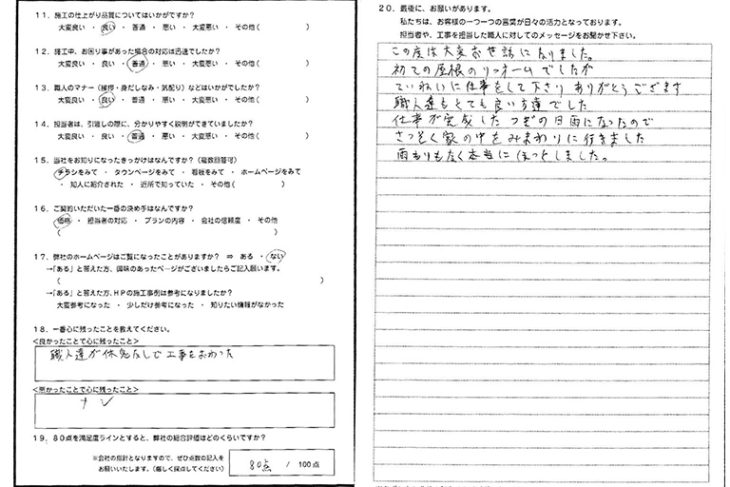 １１．施工の仕上がり品質についてはいかがですか？
大変良い ・ 良い ・ 普通 ・ 悪い ・ 大変悪い ・ その他（ ）
１２．施工中、お困り事があった場合の対応は迅速でしたか？
大変良い ・ 良い ・ 普通 ・ 悪い ・ 大変悪い ・ その他（ ）
１３．職人のマナー（挨拶・身だしなみ・気配り）などはいかがでしたか？
大変良い ・ 良い ・ 普通 ・ 悪い ・ 大変悪い ・ その他（ ）
１４．担当者は、引渡しの際に、分かりやすく説明ができていましたか？
大変良い ・ 良い ・ 普通 ・ 悪い ・ 大変悪い ・ その他（ ）
１５．当社をお知りになったきっかけはなんですか？（複数回答可）
チラシをみて ・ タウンページをみて ・ 看板をみて ・ ホームページをみて
・ 知人に紹介された ・ 近所で知っていた ・ その他（ ）
１６．ご契約いただいた一番の決め手はなんですか？
価格 ・ 担当者の対応 ・ プランの内容 ・ 会社の信頼度 ・ その他
（ ）
１７．弊社のホームページはご覧になったことがありますか？ ⇒ ある ・ ない
→「ある」と答えた方、興味のあったページがございましたらご記入願います。
（ ）
→「ある」と答えた方、ＨＰの施工事例は参考になりましたか？
大変参考になった ・ 少しだけ参考になった ・ 知りたい情報がなかった
１８．一番心に残ったことを教えてください。
＜良かったことで心に残ったこと＞
職人達が休憩なしで工事をおわった
＜悪かったことで心に残ったこと＞
ナシ
１９．８０点を満足度ラインとすると、弊社の総合評価はどのくらいですか？
※会社の指針となりますので、ぜひ点数の記入を
お願いいたします。（厳しく採点してください）
80点 / 100点
２０．最後に、お願いがあります。
私たちは、お客様の一つ一つの言葉が日々の活力となっております。
担当者や、工事を担当した職人に対してのメッセージをお聞かせ下さい。
この度は大変お世話になりました。
初ての屋根のリフォームでしたが
ていねいに仕事をして下さり ありがとうございます
職人達もとても良い方達でした
仕事が完成した つぎの日雨になったので
さっそく家の中をみまわりに行きました
雨もりもなく本当に ほっとしました。